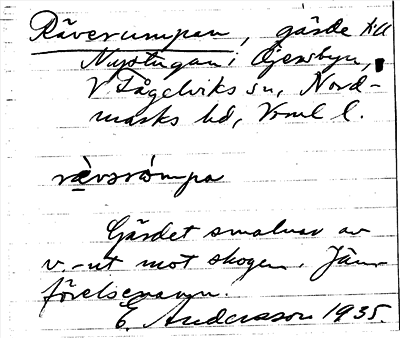 Räverumpan, gärde till
Nystugan i Öjersbyn,
V Fågelviks sn, Nord-
marks hd, Vrml l.
rävsrômpa
Gärdet smalnar av
v.-ut mot skogen. Jäm-
förelsenamn.
E. Andersson 1935.